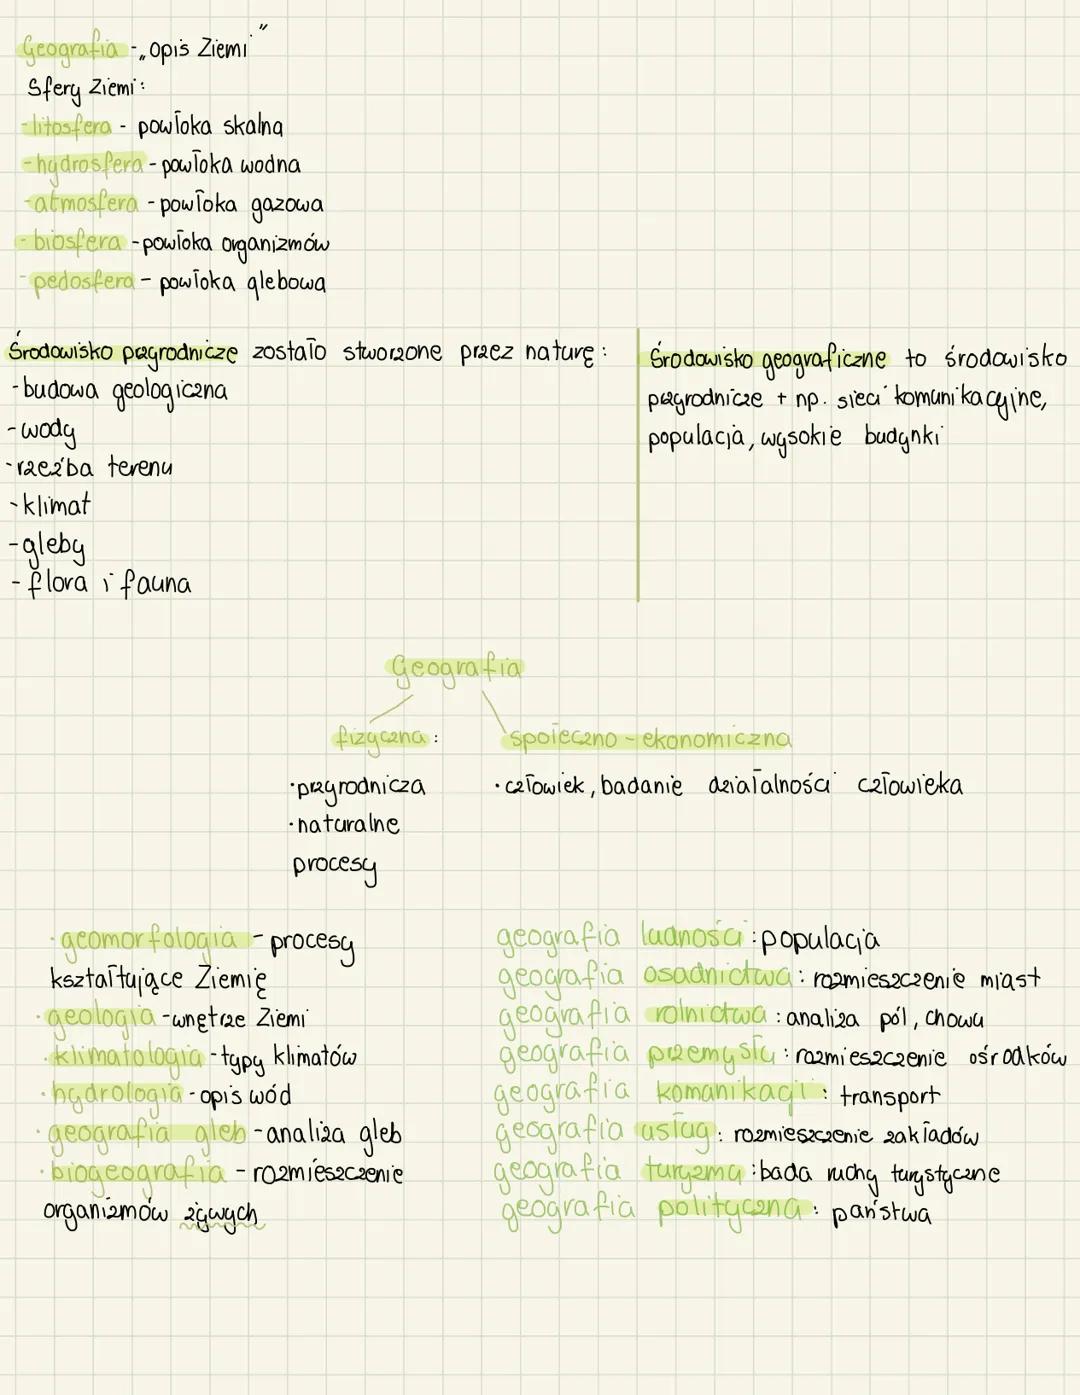 Geografia - „opis Ziemi"
Sfery Ziemi:
- litosfera - powłoka skalna
- hydrosfera - powłoka wodna
- atmosfera - powłoka gazowa
- biosfera - powłoka organizmów
- pedosfera - powłoka glebowa
Środowisko przyrodnicze zostało stworzone przez naturę:
- budowa geologiczna
- wody
- rzeźba terenu
- klimat
- gleby
- flora i fauna
Środowisko geograficzne to środowisko
przyrodnicze + np. sieci komunikacyjne,
populacja, wysokie budynki
Geografia
fizyczna:
· przyrodnicza
· naturalne
procesy
społeczno - ekonomiczna
· człowiek, badanie działalności człowieka
· geomorfologia - procesy
kształtujące Ziemię
· geologia - wnętrze Ziemi
· klimatologia - typy klimatów
· hydrologia - opis wód
· geografia gleb - analiza gleb
· biogeografia - rozmieszczenie
organizmów żywych
geografia ludności: populacja
geografia osadnictwa: rozmieszczenie miast
geografia rolnictwa: analiza pól, chowu
geografia przemysłu: rozmieszczenie ośrodków
geografia komunikacji: transport
geografia usług: rozmieszczenie zakładów
geografia turyzmu: bada ruchy turystyczne
geografia polityczna: państwa